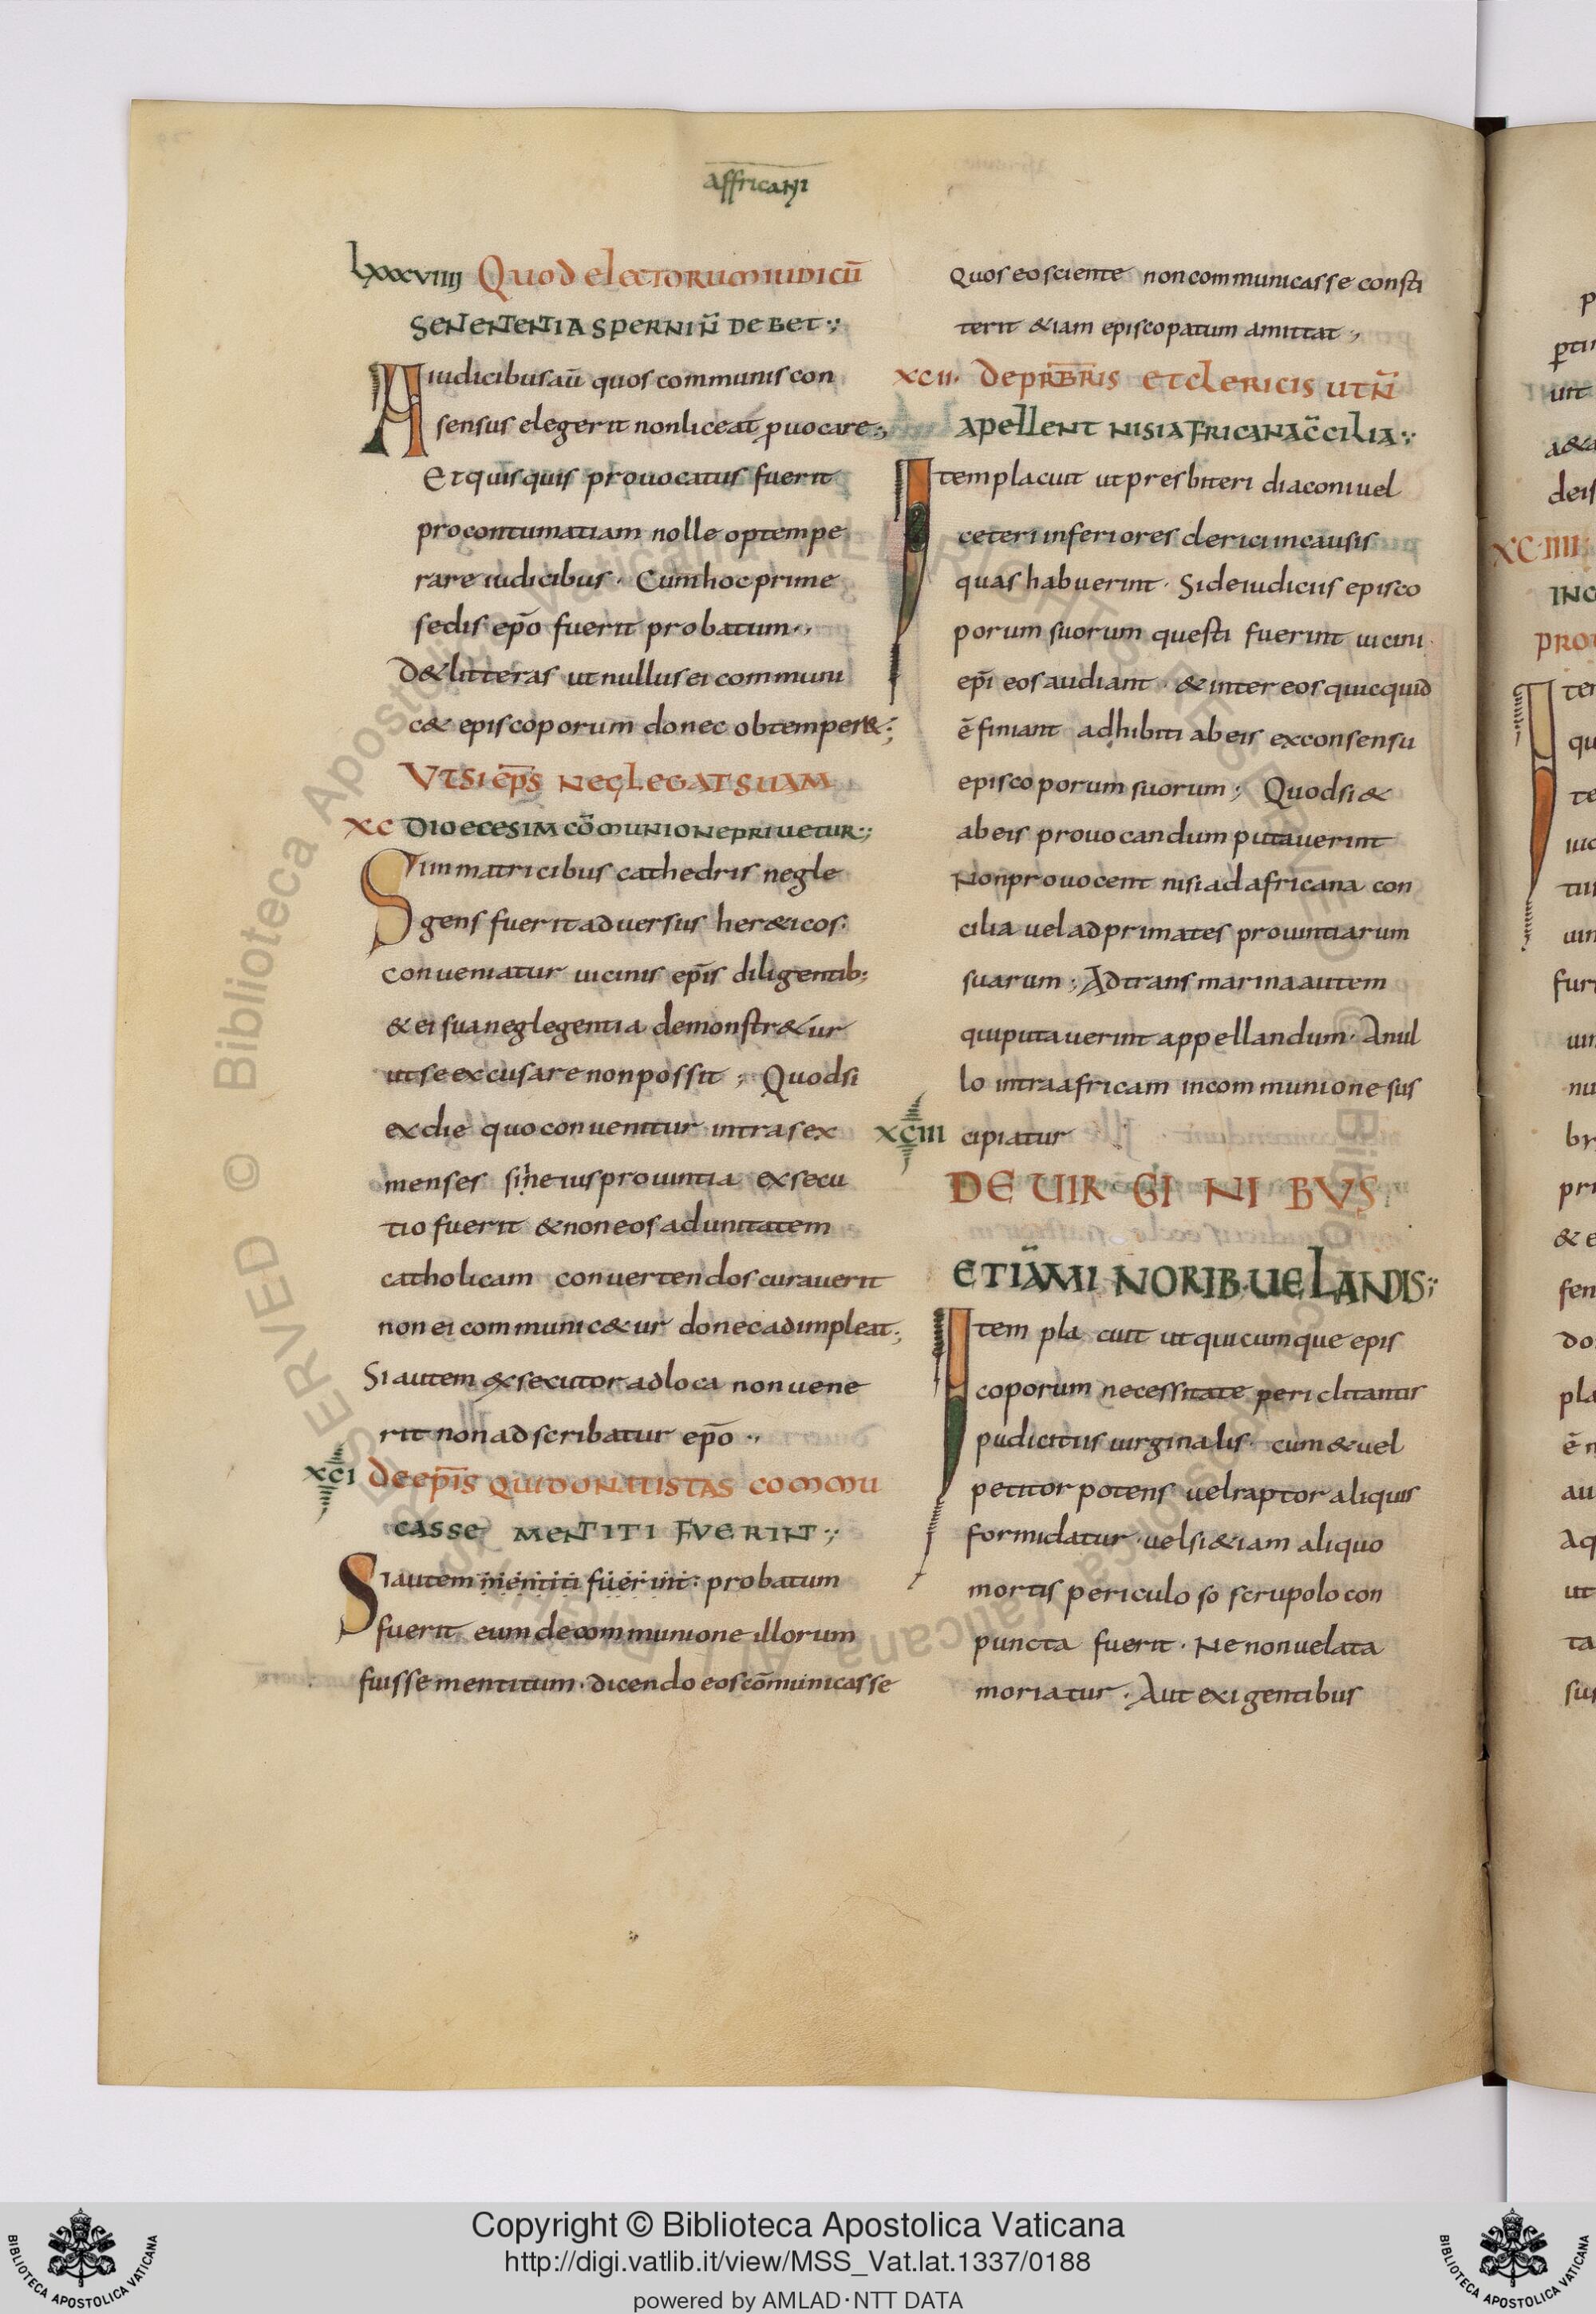 affricani
lxxxviiii Quod electorum iudicū
senententia sperni n̄ debet
A iudicibus aū quos communis con
sensus elegerit non liceat ꝓuocare
Et quisquis prouocatus fuerit
pro contumatiam nolle optempe
rare iudicibus · Cum hoc prime
sedis ep̄o fuerit probatum
D& litteras ut nullus ei communi
c& episcoporum donec obtemper&
Ut si ep̄s neglegat suam
xc dioecesim cōmunione priuetur
Si in matricibus cathedris negle
gens fuerit aduersus her&icos
conueniatur uicinis ep̄is diligentib;
& ei sua neglegentia demonstr&ur
ut se excusare non possit ; Quod si
ex die quo conuenitur intra sex
menses si in eius prouintia exsecu
tio fuerit & non eos ad unitatem
catholicam conuertendos curauerit
non ei communic&ur donec adimpleat
Si autem exsecutor ad loca non uene
rit non adscribatur ep̄o
xci de ep̄is qui donatistas commu
casse mentiti fuerint
Si autem mentiti fuerint probatum
fuerit eum de communione illorum
fuisse mentitum · dicendo eos cōmunicasse
quos eo sciente non communicasse consti
terit &iam episcopatum amittat
xcii · de pr̄b̄ris et clericis ut n̄
apellent nisi africana c̄cilia
Item placuit ut presbiteri diaconi uel
ceteri inferiores clerici in causis
quas habuerint · Si de iudiciis episco
porum suorum questi fuerint uicini
ep̄i eos audiant · & inter eos quicquid
ē finiant adhibiti ab eis ex consensu
episcoporum suorum ; Quod si &
ab eis prouocandum putauerint
Non prouocent nisi ad africana con
cilia uel ad primates prouintiarum
suarum ; Ad transmarina autem
qui putauerint appellandum · A nul
lo intra africam in communione sus
xciii cipiatur
DE UIRGINIBUS
ETIĀ MINORIB· UELANDIS
Item placuit ut quicumque epis
coporum necessitate periclitantis
pudicitiis uirginalis · cum & uel
petitor potens uel raptor aliquis
formidatur · uel si &iam aliquo
mortis periculoso scrupolo con
puncta fuerit · Ne non uelata
moriatur · Aut exigentibus
Copyright © Biblioteca Apostolica Vaticana
http://digi.vatlib.it/view/MSS_Vat.lat.1337/0188
powered by AMLAD·NTT DATA